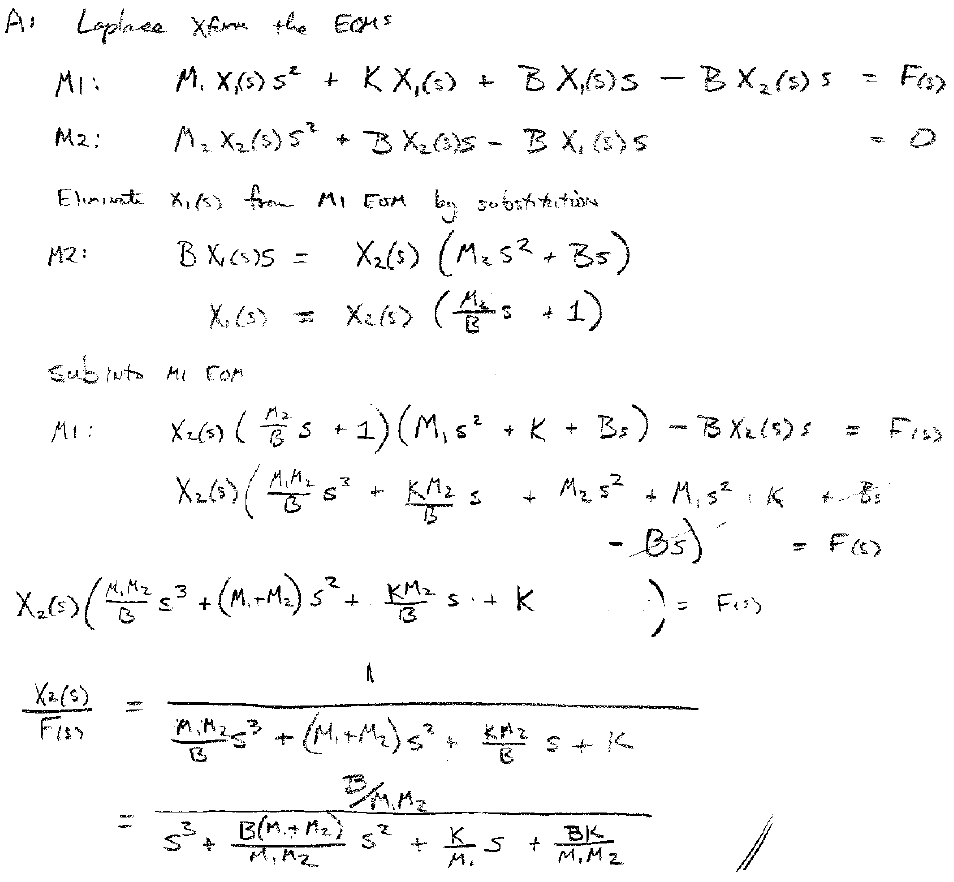 A: Laplace Xform the EOMs
M1: M₁ X₁(s) s² + K X₁(s) + B X₁(s) s − B X₂(s) s = F(s)
M2: M₂ X₂(s) s² + B X₂(s) s − B X₁(s) s = 0
Eliminate X₁(s) from M1 EOM by substitution
M2: B X₁(s) s = X₂(s) (M₂ s² + Bs)
X₁(s) = X₂(s) (M₂/B s + 1)
Sub into M1 EOM
M1: X₂(s) (M₂/B s + 1)(M₁ s² + K + Bs) − B X₂(s) s = F(s)
X₂(s) (M₁M₂/B s³ + KM₂/B s + M₂ s² + M₁ s² + K + Bs
− Bs) = F(s)
X₂(s) (M₁M₂/B s³ + (M₁+M₂) s² + KM₂/B s + K) = F(s)
X₂(s)/F(s) = 1 / (M₁M₂/B s³ + (M₁+M₂) s² + KM₂/B s + K)
= B/M₁M₂ / (s³ + B(M₁+M₂)/M₁M₂ s² + K/M₁ s + BK/M₁M₂)